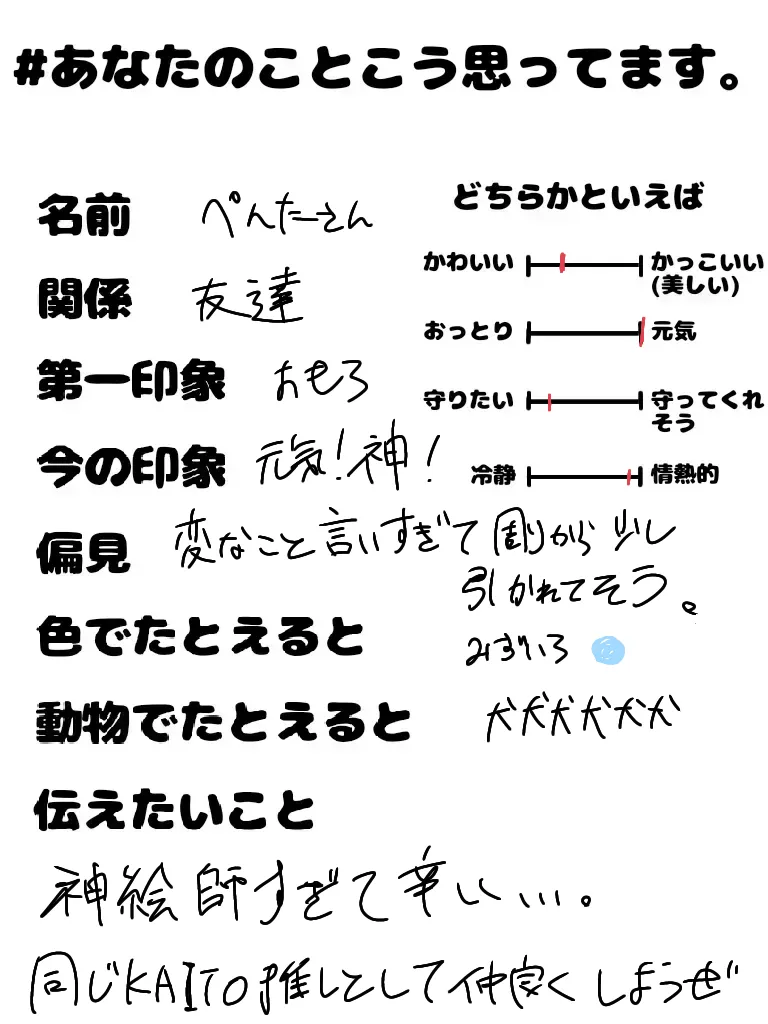 #あなたのことこう思ってます。
名前 ぺんたーさん
関係 友達
第一印象 おもろ
今の印象 元気!神!
どちらかといえば
かわいい かっこいい
(美しい)
おっとり 元気
守りたい 守ってくれ
そう
冷静 情熱的
偏見 変なこと言いすぎて周りから少し
引かれてそう。
色でたとえると みずいろ
動物でたとえると 犬犬犬犬犬犬
伝えたいこと
神絵師すぎて辛い...。
同じKAITO推しとして仲良くしようぜ